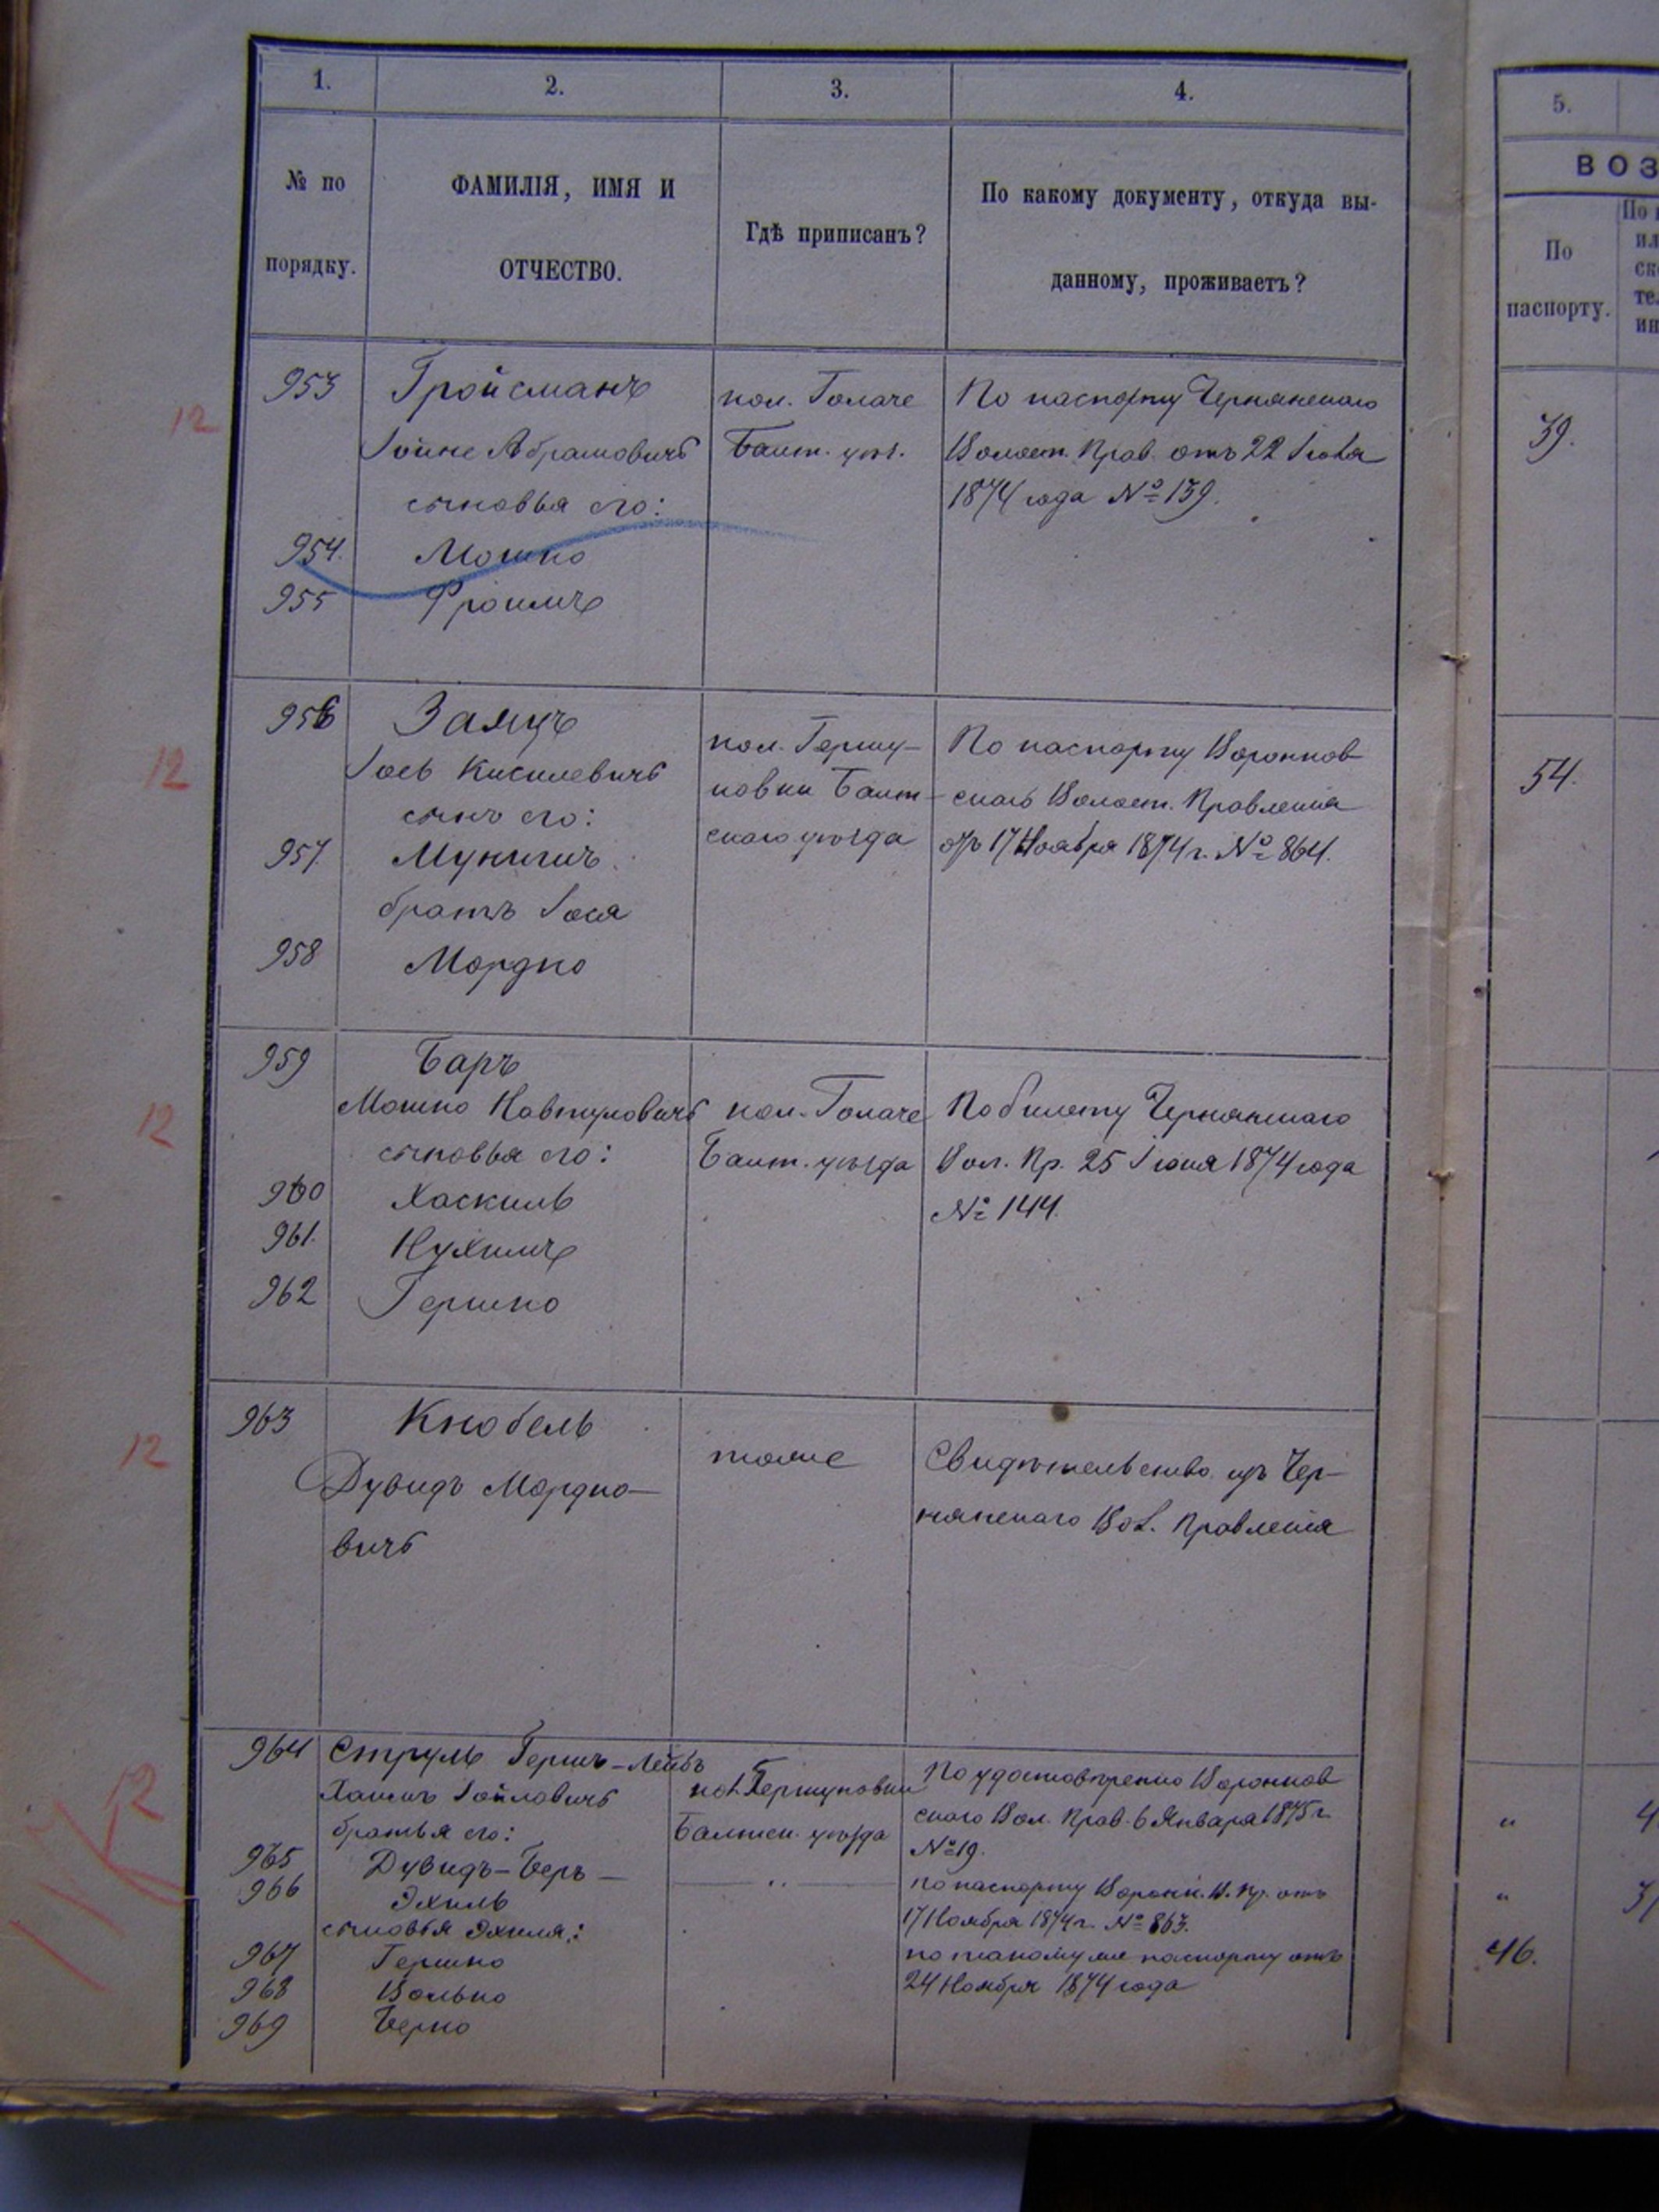 1.
2.
3.
4.
5.
№ по
порядку.
ФАМИЛІЯ, ИМЯ И
ОТЧЕСТВО.
Гдѣ приписанъ?
По какому документу, откуда вы-
данному, проживаетъ?
ВОЗ
По
паспорту.
953 Гройсманъ
12
Іойне Абрамовичъ
сыновья его:
954. Мошко
955 Фроимъ
кол. Голаче
Балт. уѣз.
По паспорту Чернянскаго
Волост. Прав. отъ 22 Іюля
1874 года № 139.
39.
956 Заяцъ
12
Іось Кисилевичъ
сынъ его:
957
братъ Іося
958 Мордко
кол. Гершу-
новки Балт-
скаго уѣзда
По паспорту Воронков-
скаго Волост. Правленія
отъ 17 Ноября 1874 г. № 864.
54.
959 Баръ
12
Мошко Навтуловичъ
сыновья его:
960 Хаскиль
961. Нухимъ
962 Гершко
кол. Голаче
Балт. уѣзда
По билету Чернянскаго
Вол. Пр. 25 Іюня 1874 года
№ 144.
963 Кнобель
12
Дувидъ Мордко-
вичъ
тоже
Свидѣтельство изъ Чер-
нянскаго Вол. Правленія
964 Струль Гершъ-Лейбъ
12
Хаимъ Іойловичъ
братья его:
965 Дувидъ-Беръ —
966 Эхиль
сыновья Эхиля:
967 Гершко
968 Волько
969 Берко
кол. Гершуновки
Балтск. уѣзда
— " —
По удостовѣренію Воронков-
скаго Вол. Прав. 6 Января 1875 г.
№ 19.
по паспорту Воронк. В. Пр. отъ
17 Ноября 1874 г. № 863.
по такому же паспорту отъ
24 Ноября 1874 года
"
"
46.